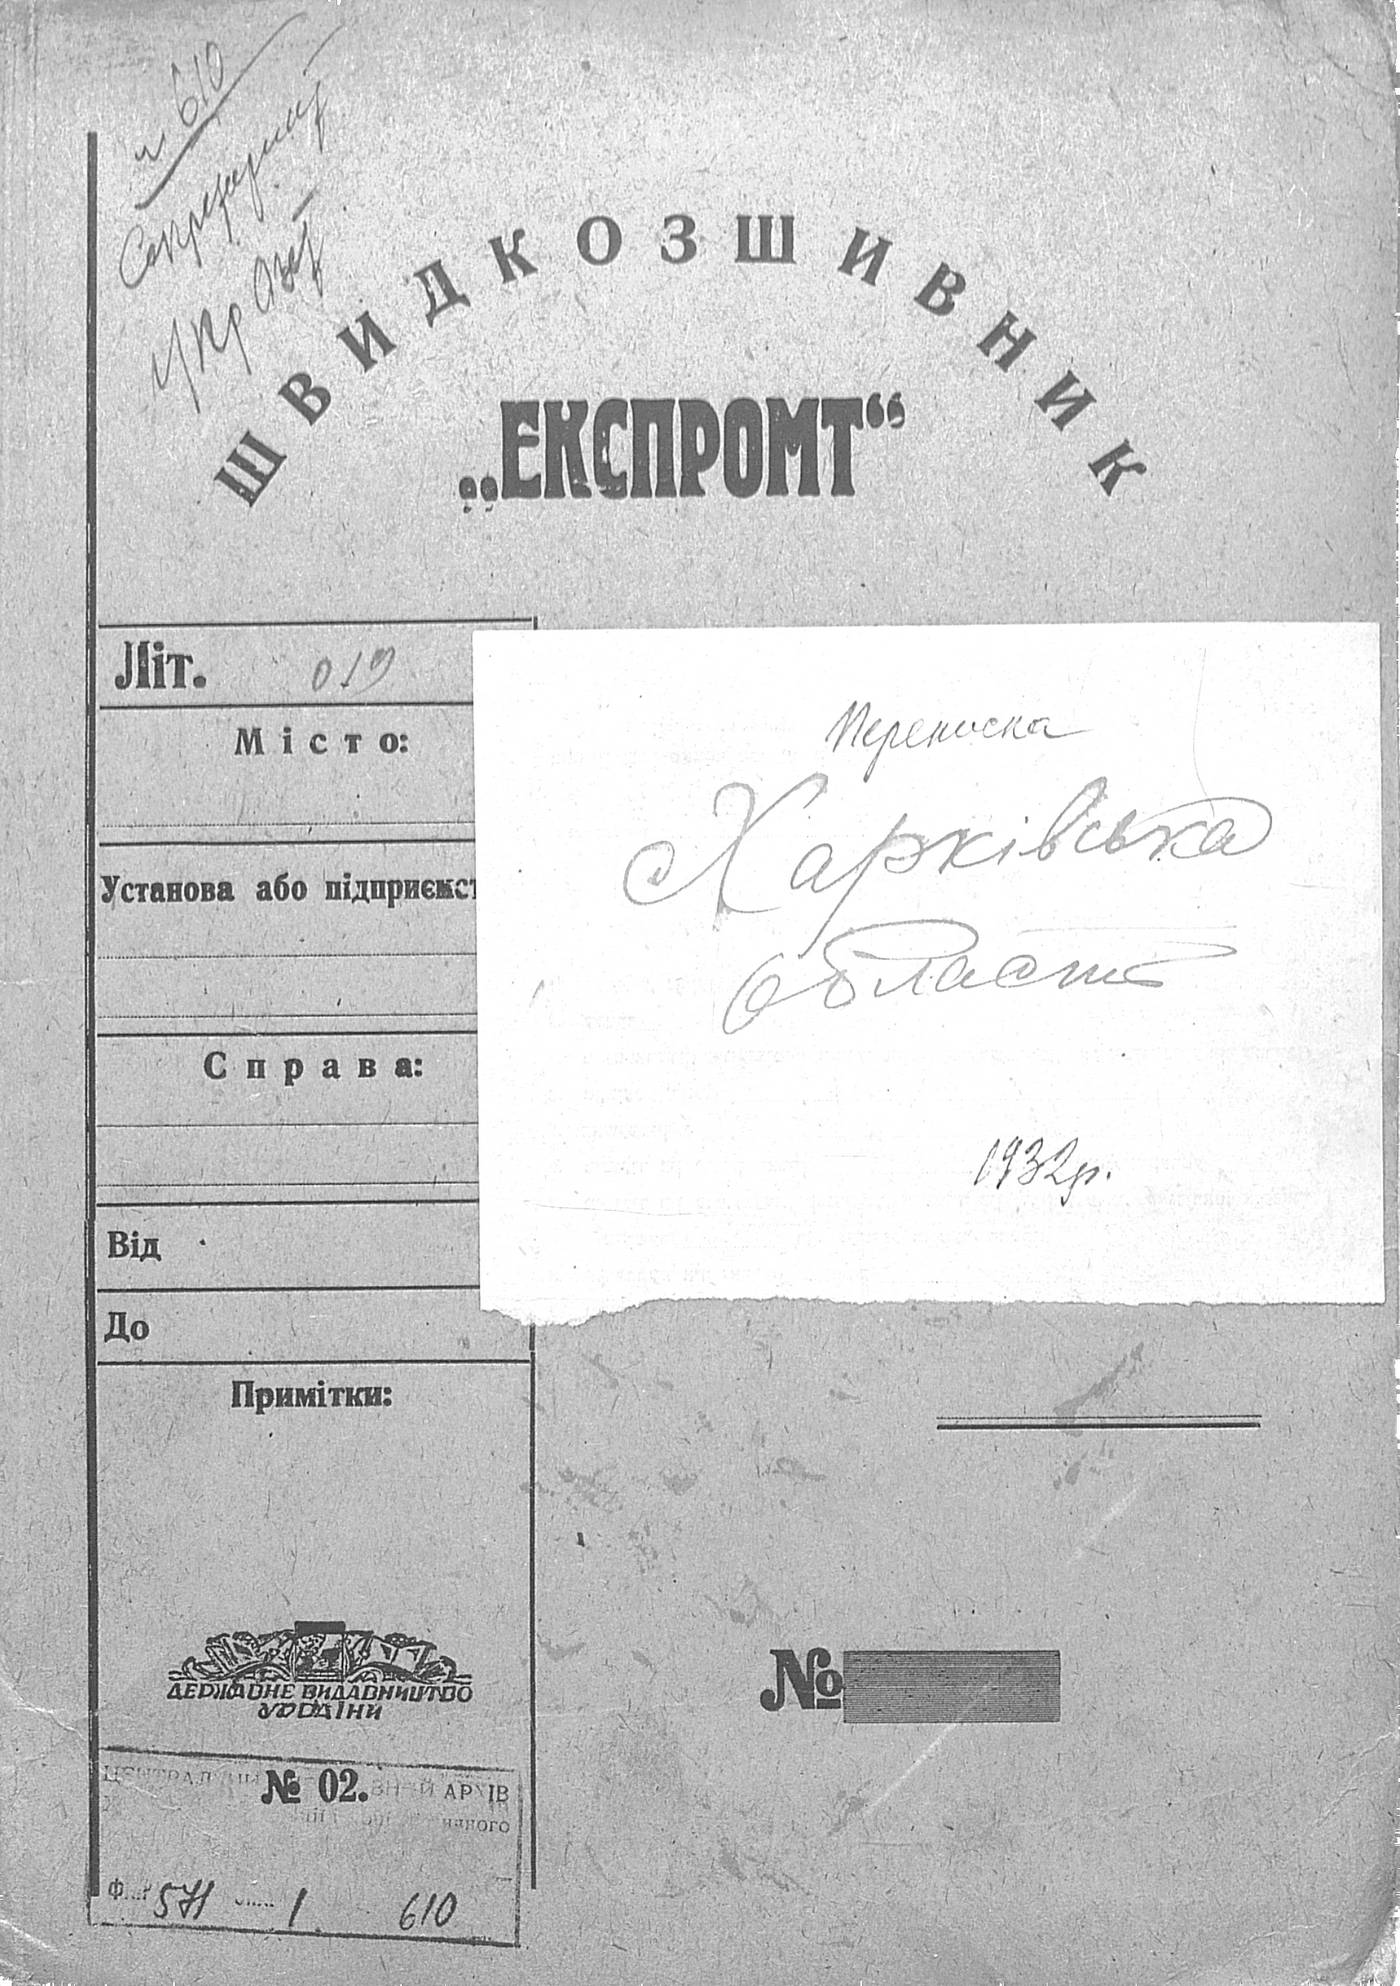 № 610
Секретаріат
УкрОзет
ШВИДКОЗШИВНИК
„ЕКСПРОМТ“
Літ. 019
Місто:
Установа або підприємст
Справа:
Від
До
Примітки:
Переписка
Харківська
область
1932р.
ДЕРЖАВНЕ ВИДАВНИЦТВО
УКРАЇНИ
№
№ 02.
АРХІВ
571 1 610